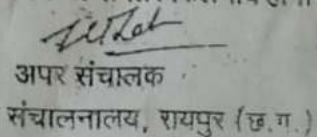 अपर संचालक
संचालनालय, रायपुर (छ.ग.)